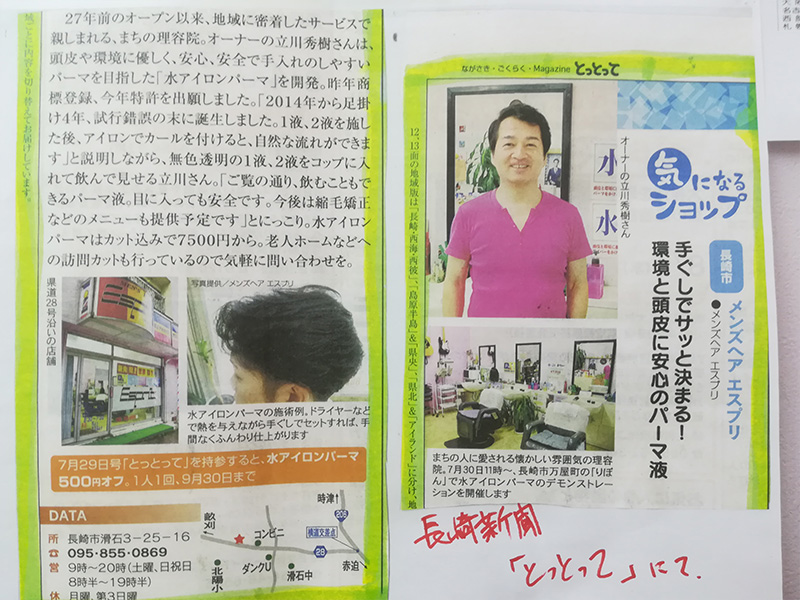 27年前のオープン以来、地域に密着したサービスで
親しまれる、まちの理容院。オーナーの立川秀樹さんは、
頭皮や環境に優しく、安心、安全で手入れのしやすい
パーマを目指した「水アイロンパーマ」を開発。昨年商
標登録、今年特許を出願しました。「2014年から足掛
け4年、試行錯誤の末に誕生しました。1液、2液を施し
た後、アイロンでカールを付けると、自然な流れができま
す」と説明しながら、無色透明の1液、2液をコップに入
れて飲んで見せる立川さん。「ご覧の通り、飲むこともで
きるパーマ液。目に入っても安全です。今後は縮毛矯正
などのメニューも提供予定です」とにっこり。水アイロン
パーマはカット込みで7500円から。老人ホームなどへ
の訪問カットも行っているので気軽に問い合わせを。
ごとに内容を切り替えてお届けしています。
県道28号沿いの店舗
写真提供/メンズヘア エスプリ
水アイロンパーマの施術例。ドライヤーなど
で熱を与えながら手ぐしでセットすれば、手
間なくふんわり仕上がります
7月29日号「とっとって」を持参すると、水アイロンパーマ
500円オフ。1人1回、9月30日まで
DATA
所 長崎市滑石3-25-16
☎ 095・855・0869
営 9時〜20時(土曜、日祝日
8時半〜19時半)
休 月曜、第3日曜
畝刈
時津↑
206
コンビニ
横道交差点
28
北陽小
ダンクU
滑石中
赤迫
ながさき・ごくらく・Magazine とっとって
12、13面の地域版は「長崎・西海・西彼」、「島原半島」&「県央」、「県北」&「アイランド」に分け、地
オーナーの立川秀樹さん
水
水
気になる
ショップ
長崎市
メンズヘア エスプリ
●メンズヘア エスプリ
手ぐしでサッと決まる!
環境と頭皮に安心のパーマ液
まちの人に愛される懐かしい雰囲気の理容
院。7月30日11時〜、長崎市万屋町の「りぼ
ん」で水アイロンパーマのデモンストレ
ーションを開催します
長崎新聞
「とっとって」にて.
名古
西
札